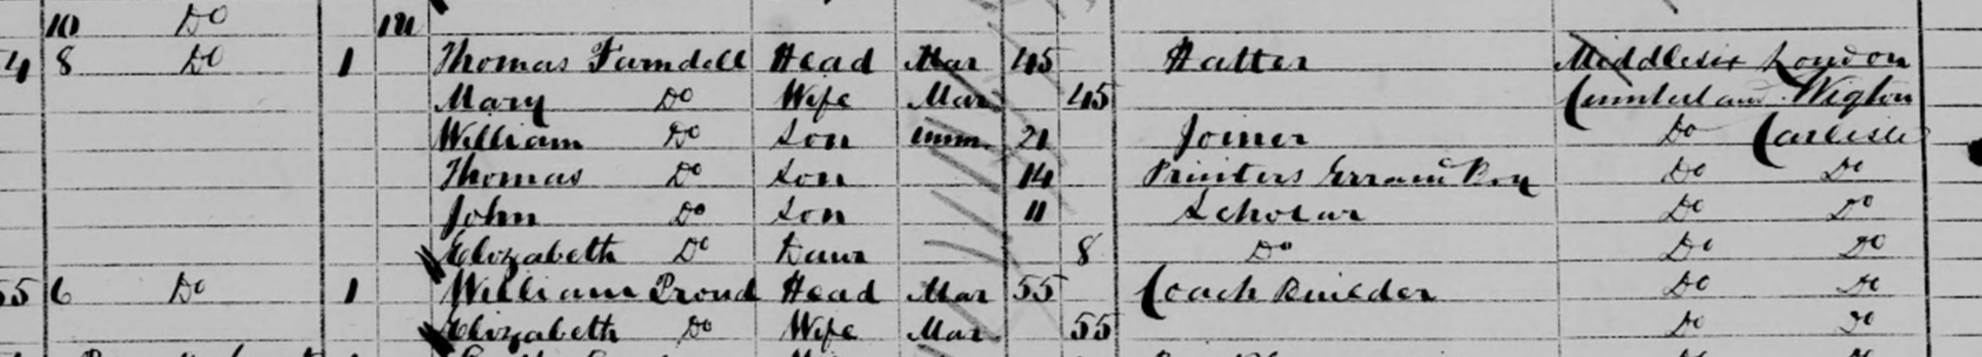 10 Do 1 U
4 8 Do 1 Thomas Farndell Head Mar 45 Hatter Middlesix London
Mary Do Wife Mar 45 Cumberland Wigton
William Do Son unm. 21 Joiner Do Carlisle
Thomas Do Son 14 Printers Errand Boy Do Do
John Do Son 11 Scholar Do Do
Elizabeth Do Daur 8 Do Do Do
55 6 Do 1 William Proud Head Mar 55 Coach Builder Do Do
Elizabeth Do Wife Mar 55 Do Do